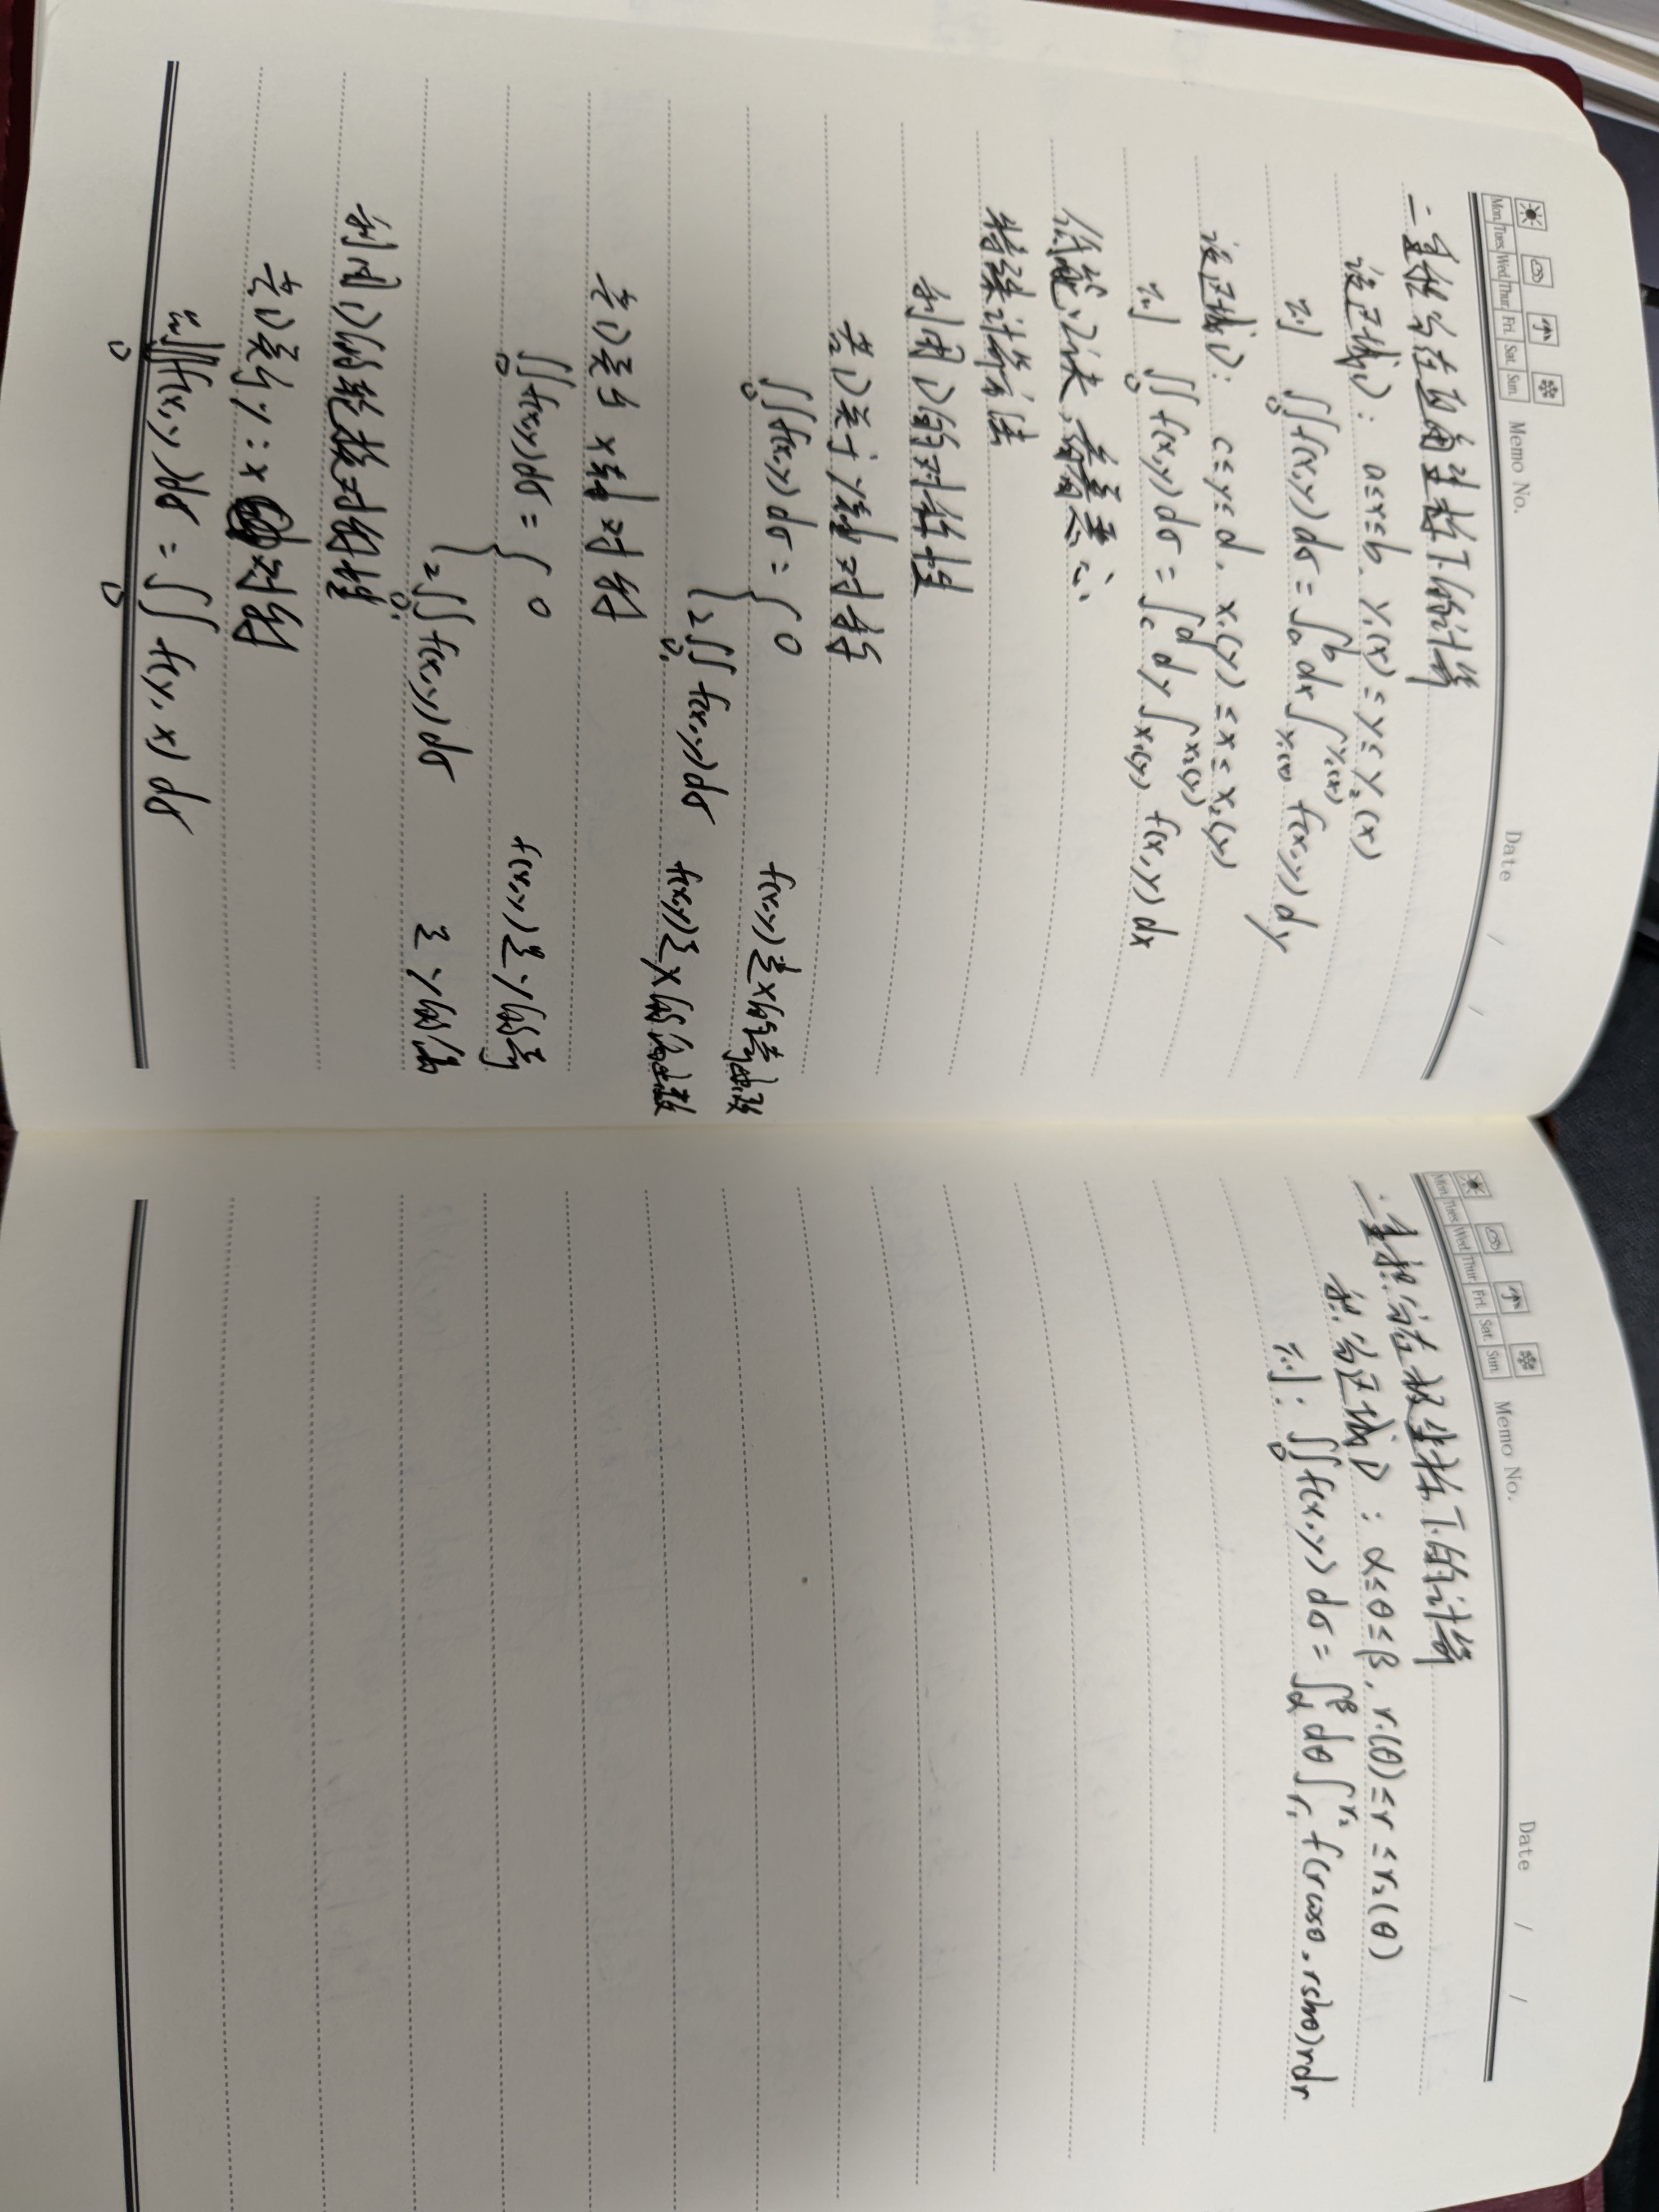 Mon. Tues. Wed. Thur. Fri. Sat. Sun. Memo No. Date / /
二重积分在直角坐标下的计算
设区域D: a≤x≤b, y₁(x)≤y≤y₂(x)
则 ∬_D f(x,y)dσ = ∫_a^b dx∫_{y₁(x)}^{y₂(x)} f(x,y)dy
设区域D: c≤y≤d, x₁(y)≤x≤x₂(y)
则 ∬_D f(x,y)dσ = ∫_c^d dy∫_{x₁(y)}^{x₂(y)} f(x,y)dx
特殊计算方法
利用D的对称性
若D关于y轴对称
∬_D f(x,y)dσ = { 0 f(x,y)是x的奇函数
2∬_{D₁} f(x,y)dσ f(x,y)是x的偶函数
若D关于x轴对称
∬_D f(x,y)dσ = { 0 f(x,y)是y的奇
2∬_{D₁} f(x,y)dσ 是y的偶
利用D的轮换对称性
若D关于y=x对称
则∬_D f(x,y)dσ = ∬_D f(y,x)dσ
Mon. Tues. Wed. Thur. Fri. Sat. Sun. Memo No. Date / /
二重积分在极坐标下的计算
积分区域D: α≤θ≤β, r₁(θ)≤r≤r₂(θ)
则: ∬_D f(x,y)dσ = ∫_α^β dθ∫_{r₁}^{r₂} f(rcosθ, rsinθ)rdr